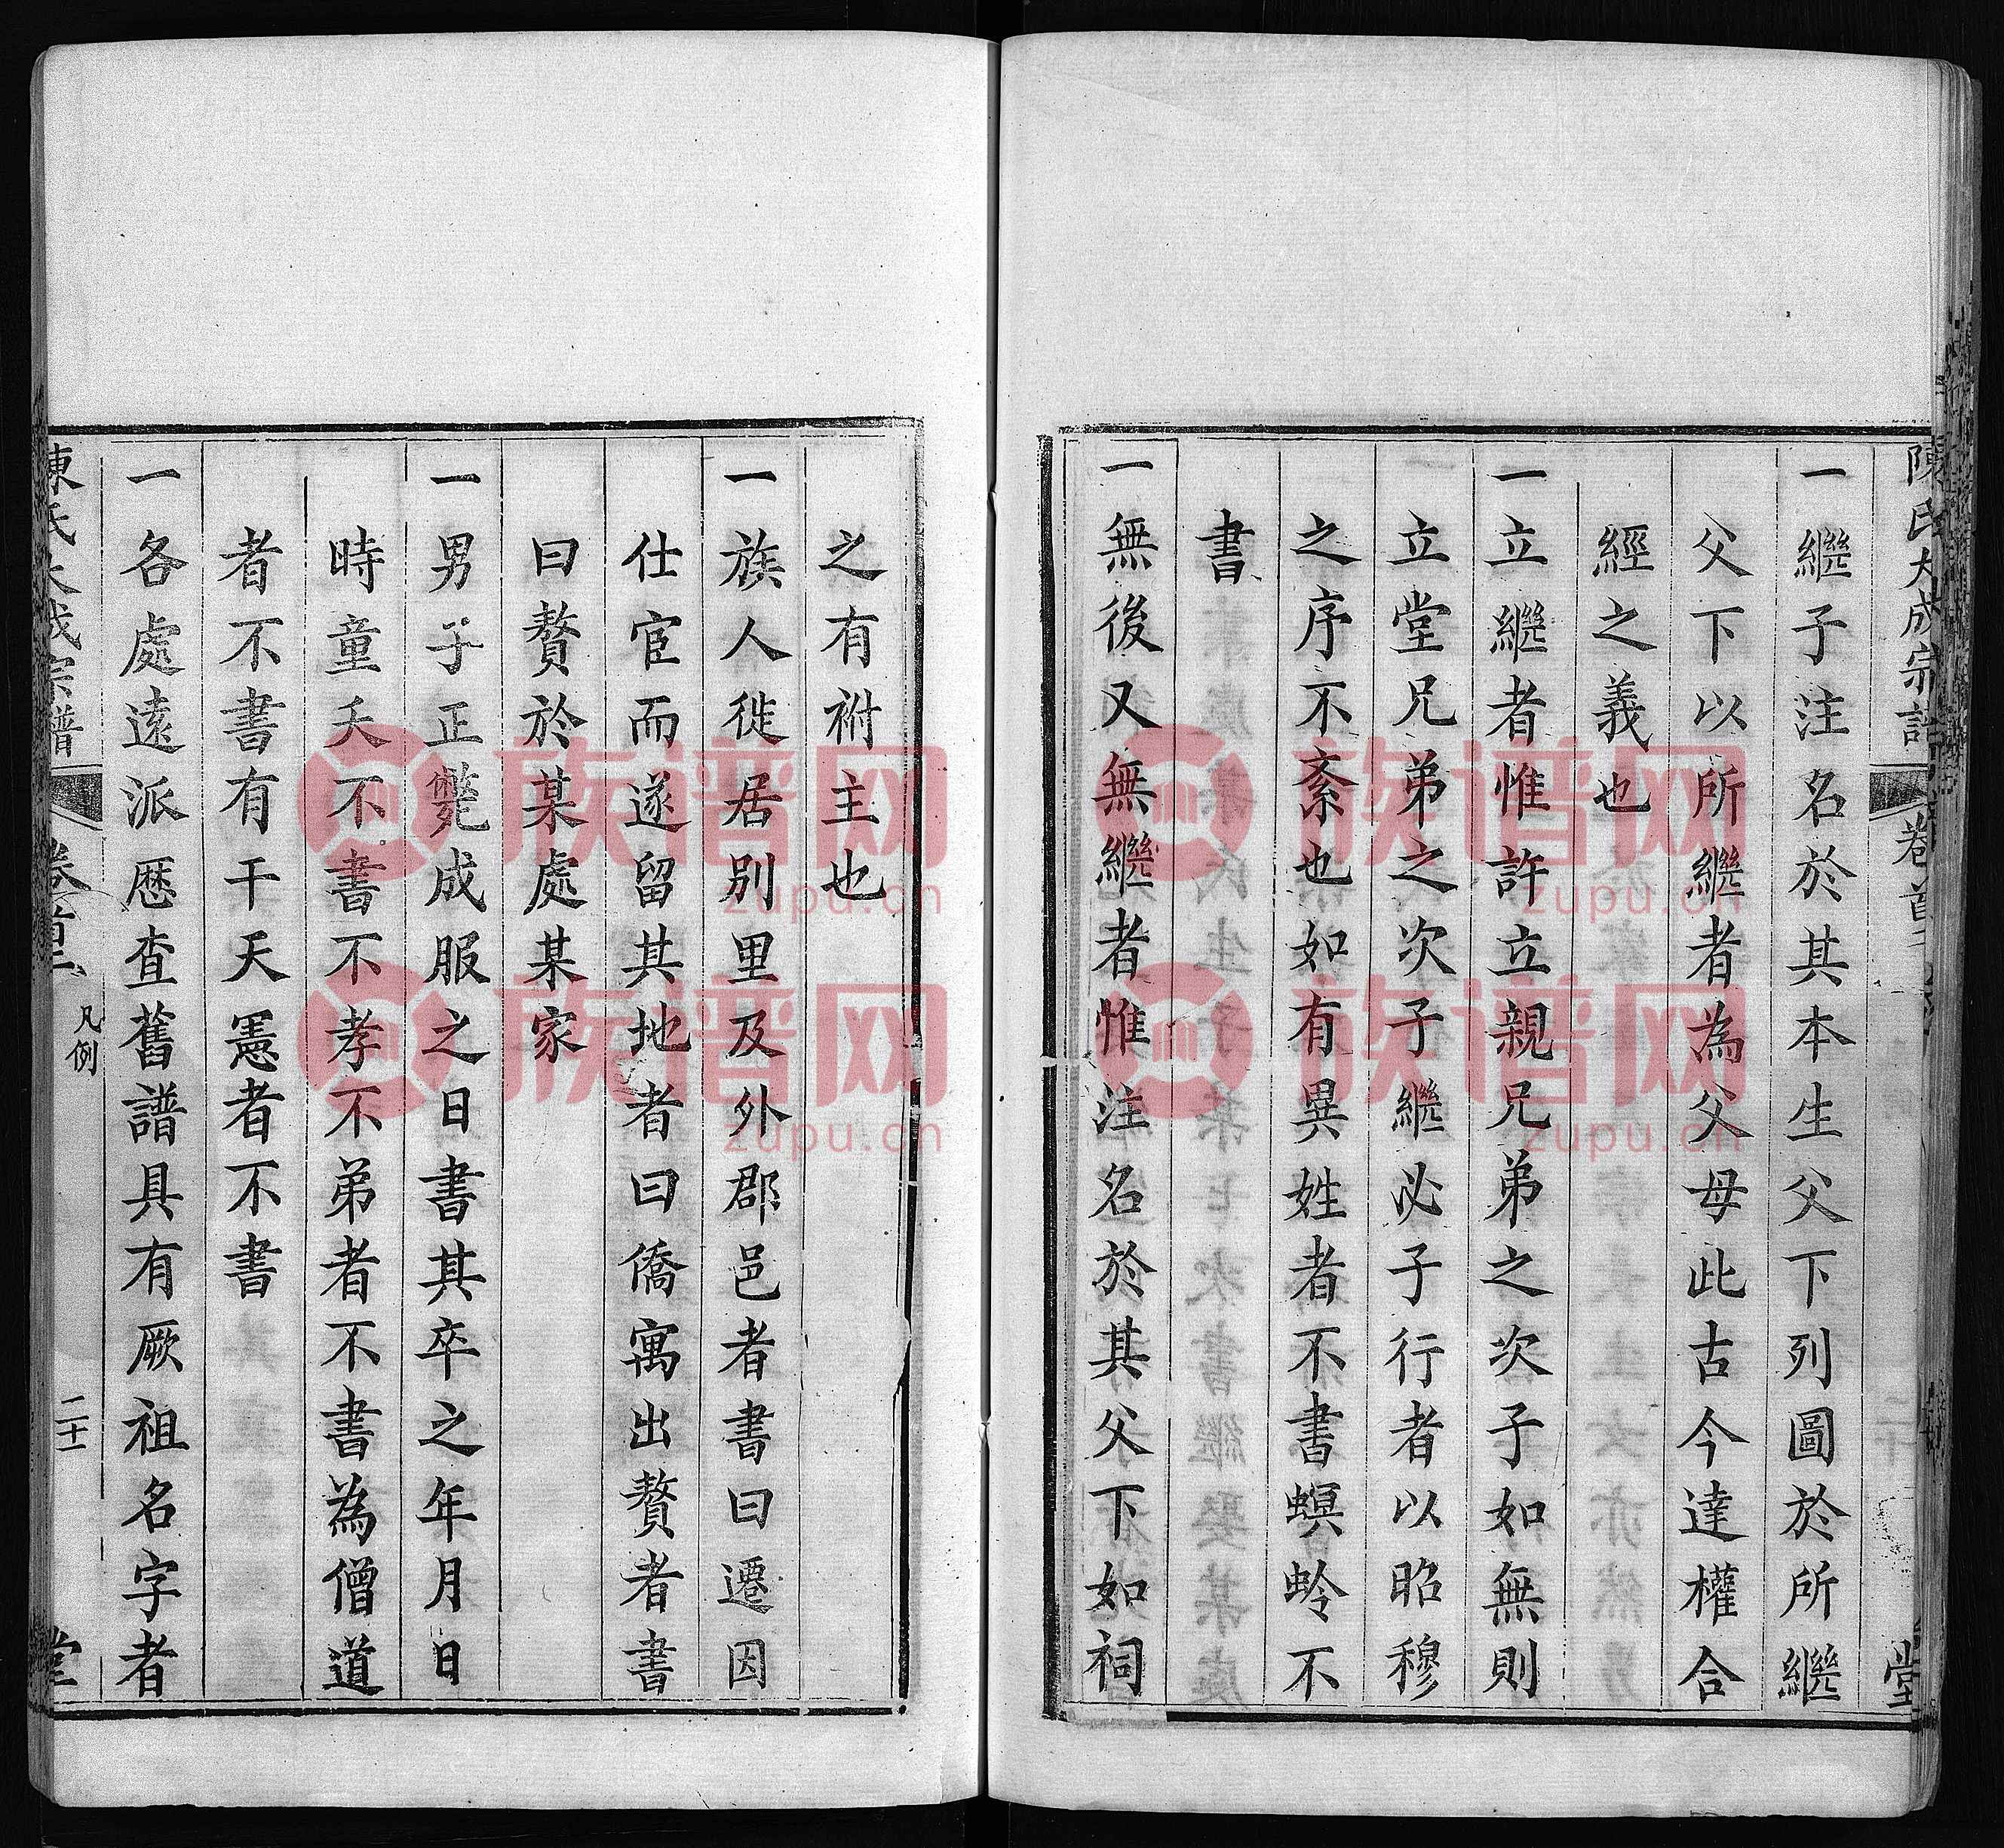 陳氏大成宗譜
卷首
堂
一繼子注名於其本生父下列圖於所繼
父下以所繼者為父母此古今達權合
經之義也
一立繼者惟許立親兄弟之次子如無則
立堂兄弟之次子繼必子行者以昭穆
之序不紊也如有異姓者不書螟蛉不
書
一無後又無繼者惟注名於其父下如祠
之有祔主也
一族人徙居別里及外郡邑者書曰遷因
仕宦而遂留其地者曰僑寓出贅者書
曰贅於某處某家
一男子正斃成服之日書其卒之年月日
時童夭不書不孝不弟者不書為僧道
者不書有干天憲者不書
一各處遠派厯查舊譜具有厥祖名字者
陳氏大成宗譜
卷首
凡例
二十一
堂
族谱网
zupu.cn
族谱网
zupu.cn
族谱网
zupu.cn
族谱网
zupu.cn